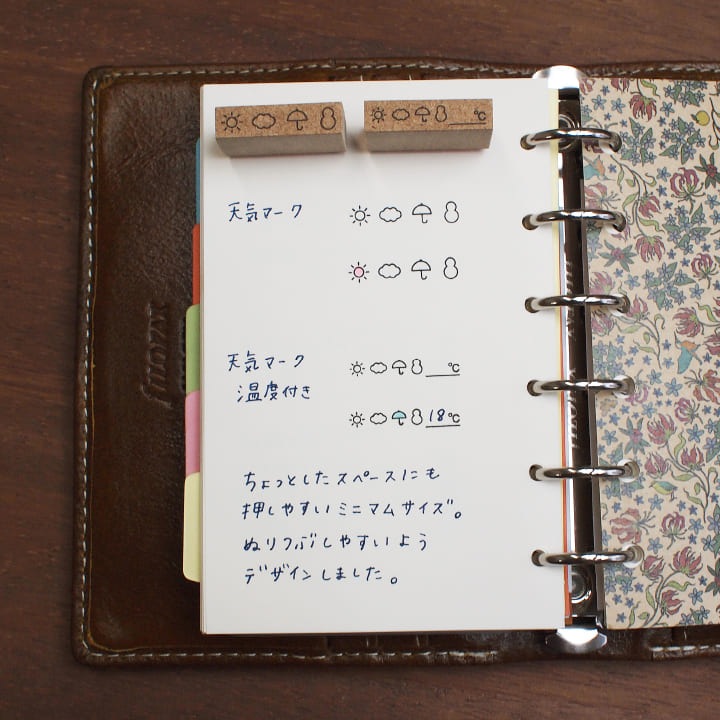 ℃
天気マーク
天気マーク
温度付き
℃
18℃
ちょっとしたスペースにも
押しやすいミニマムサイズ。
ぬりつぶしやすいよう
デザインしました。
filofax